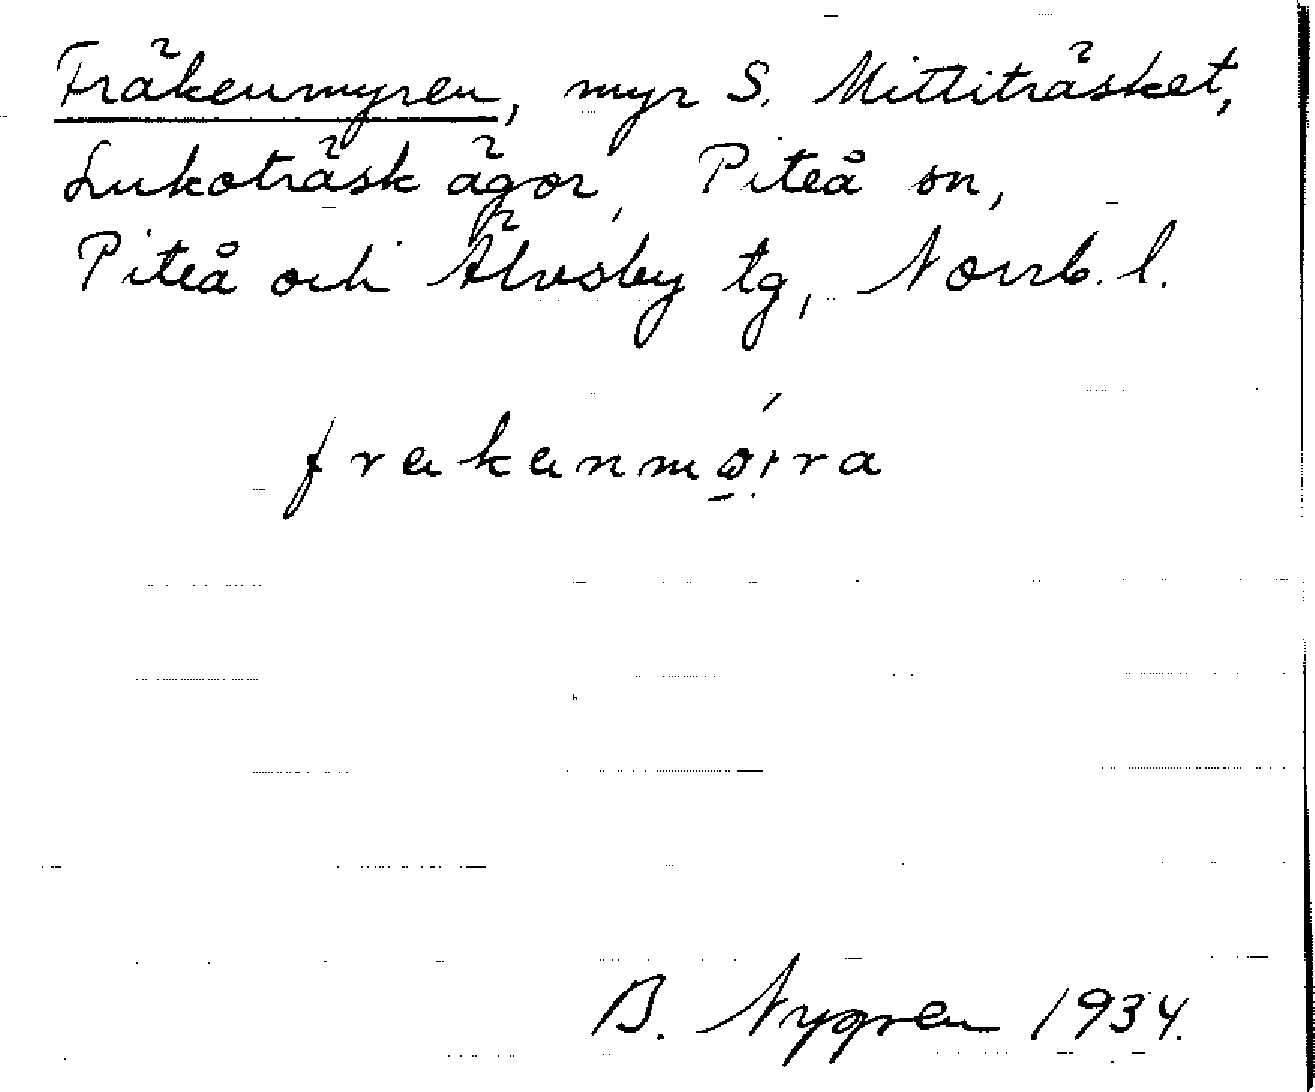 Fräkenmyren, myr S. Mittiträsket,
Lukoträsk ägor, Piteå sn,
Piteå och Älvsby tg, Norrb. l.
B. Nygren 1934.